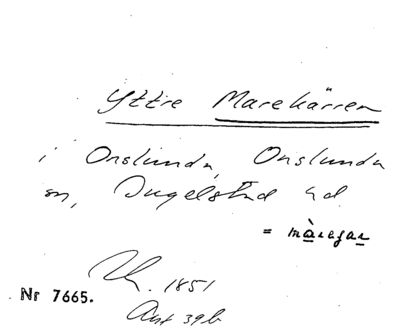 Yttre Marekärren
i Onslunda, Onslunda
sn, Ingelstad hd
= màraɟaɹ
1851
Nr 7665.
Akt 39b